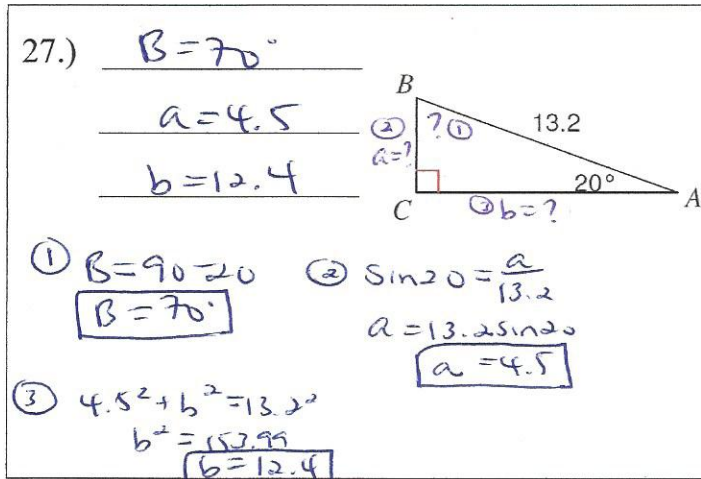 27.) B = 70°
a = 4.5
b = 12.4
B
② ?① 13.2
a=?
20°
C ③ b = ? A
① B = 90 - 20
B = 70°
② sin20 = a/13.2
a = 13.2sin20
a = 4.5
③ 4.5² + b² = 13.2²
b² = 153.99
b = 12.4